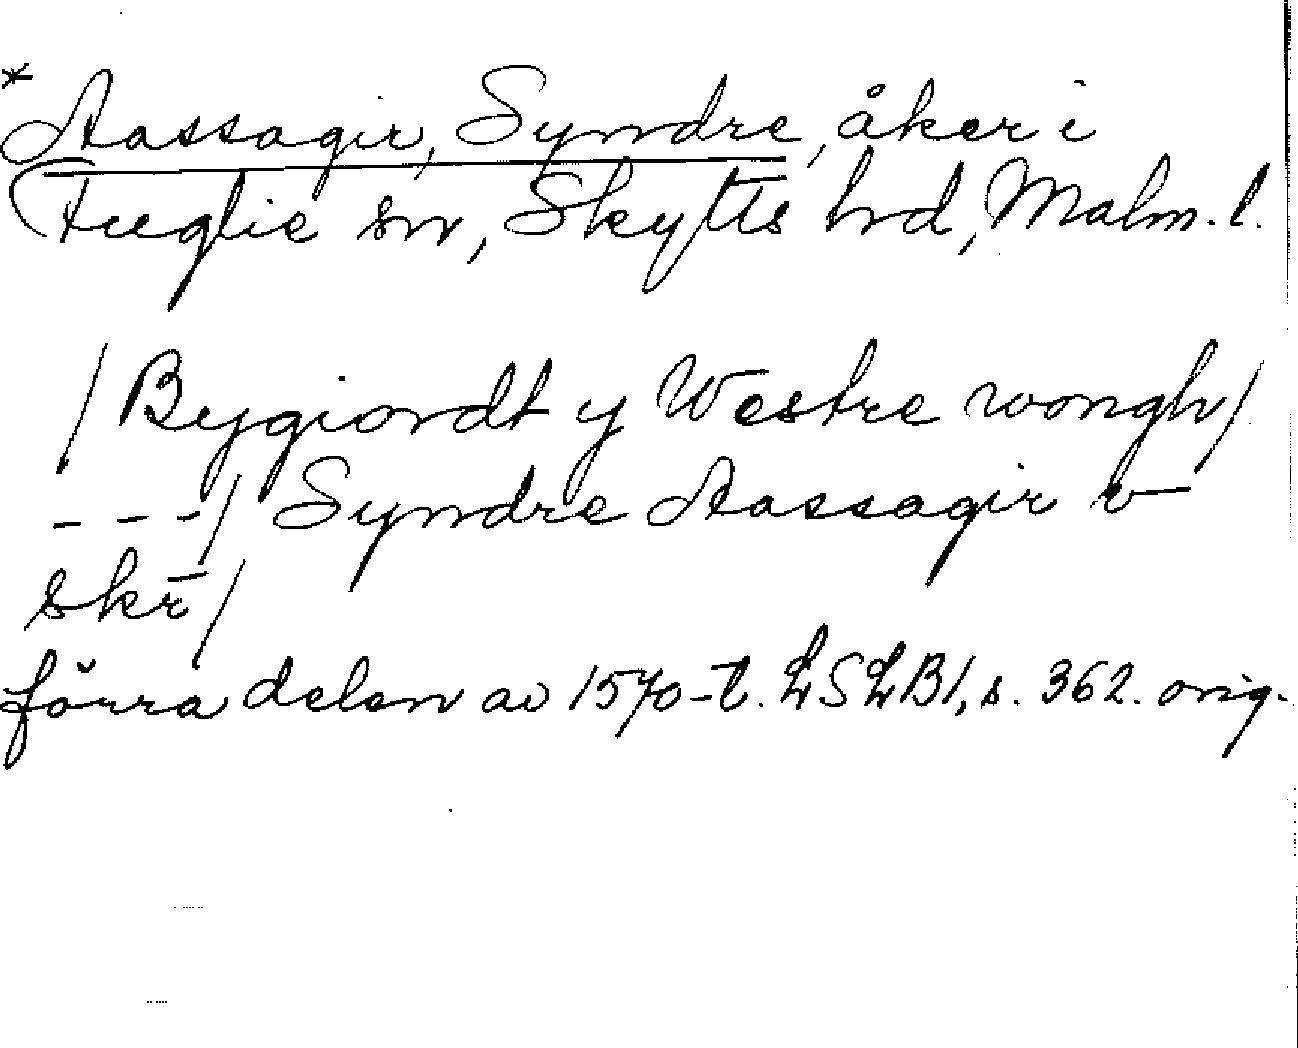 *Aassagir, Syndre, åker i
Fuglie sn, Skytts hd, Malm. l.
/Bygiordt y Westre wongh/
---/ Syndre Aassagir v
skr̄/
förra delen av 1570-t. LSLB1, s. 362. orig.